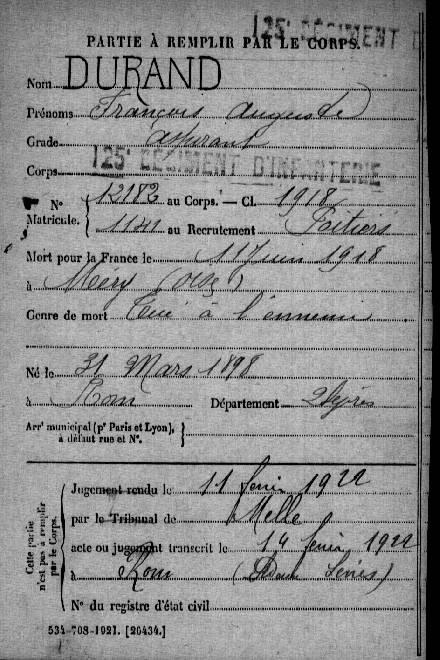 125e RÉGIMENT D
PARTIE À REMPLIR PAR LE CORPS.
Nom DURAND
Prénoms François Auguste
Grade aspirant
Corps 125e RÉGIMENT D'INFANTERIE
N° 12182 au Corps. — Cl. 1918
Matricule. 1141 au Recrutement Poitiers
Mort pour la France le 11 Juin 1918
à Méry (Oise)
Genre de mort Tué à l'ennemi
Né le 31 Mars 1898
à Rom Département 2 Sèvres
Arrt municipal (pr Paris et Lyon),
à défaut rue et N°.
Cette partie
n'est pas à remplir
par le Corps.
Jugement rendu le 11 février 1922
par le Tribunal de Melle
acte ou jugement transcrit le 14 février 1922
à Rom (Deux Sèvres)
N° du registre d'état civil
534-708-1921. [26434.]